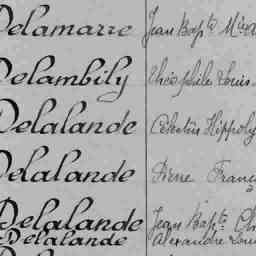 Delamarre Jean Bapte
Delambily Théophile Louis
Delalande Célestin Hippoly
Delalande Pierre Franç
Delalande Jean Bapte Ch
Delalande Alexandre Loui